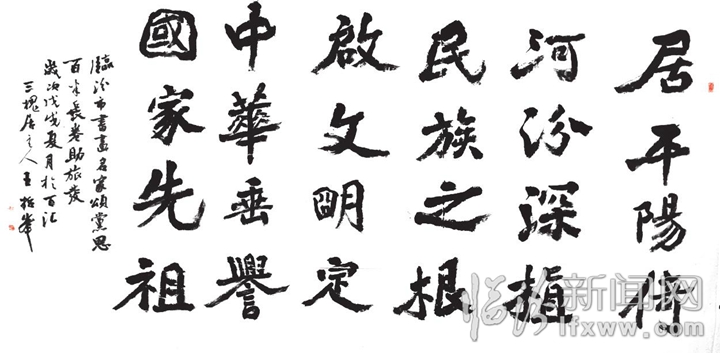 居平陽
河汾深植
民族之根
啟文明定
中華垂譽
國家先祖
臨汾市書畫名家頌黨恩
百米長卷助旅發
歲次戊戌夏月於百汇
三槐居主人王
临汾新闻网
lfxww.com